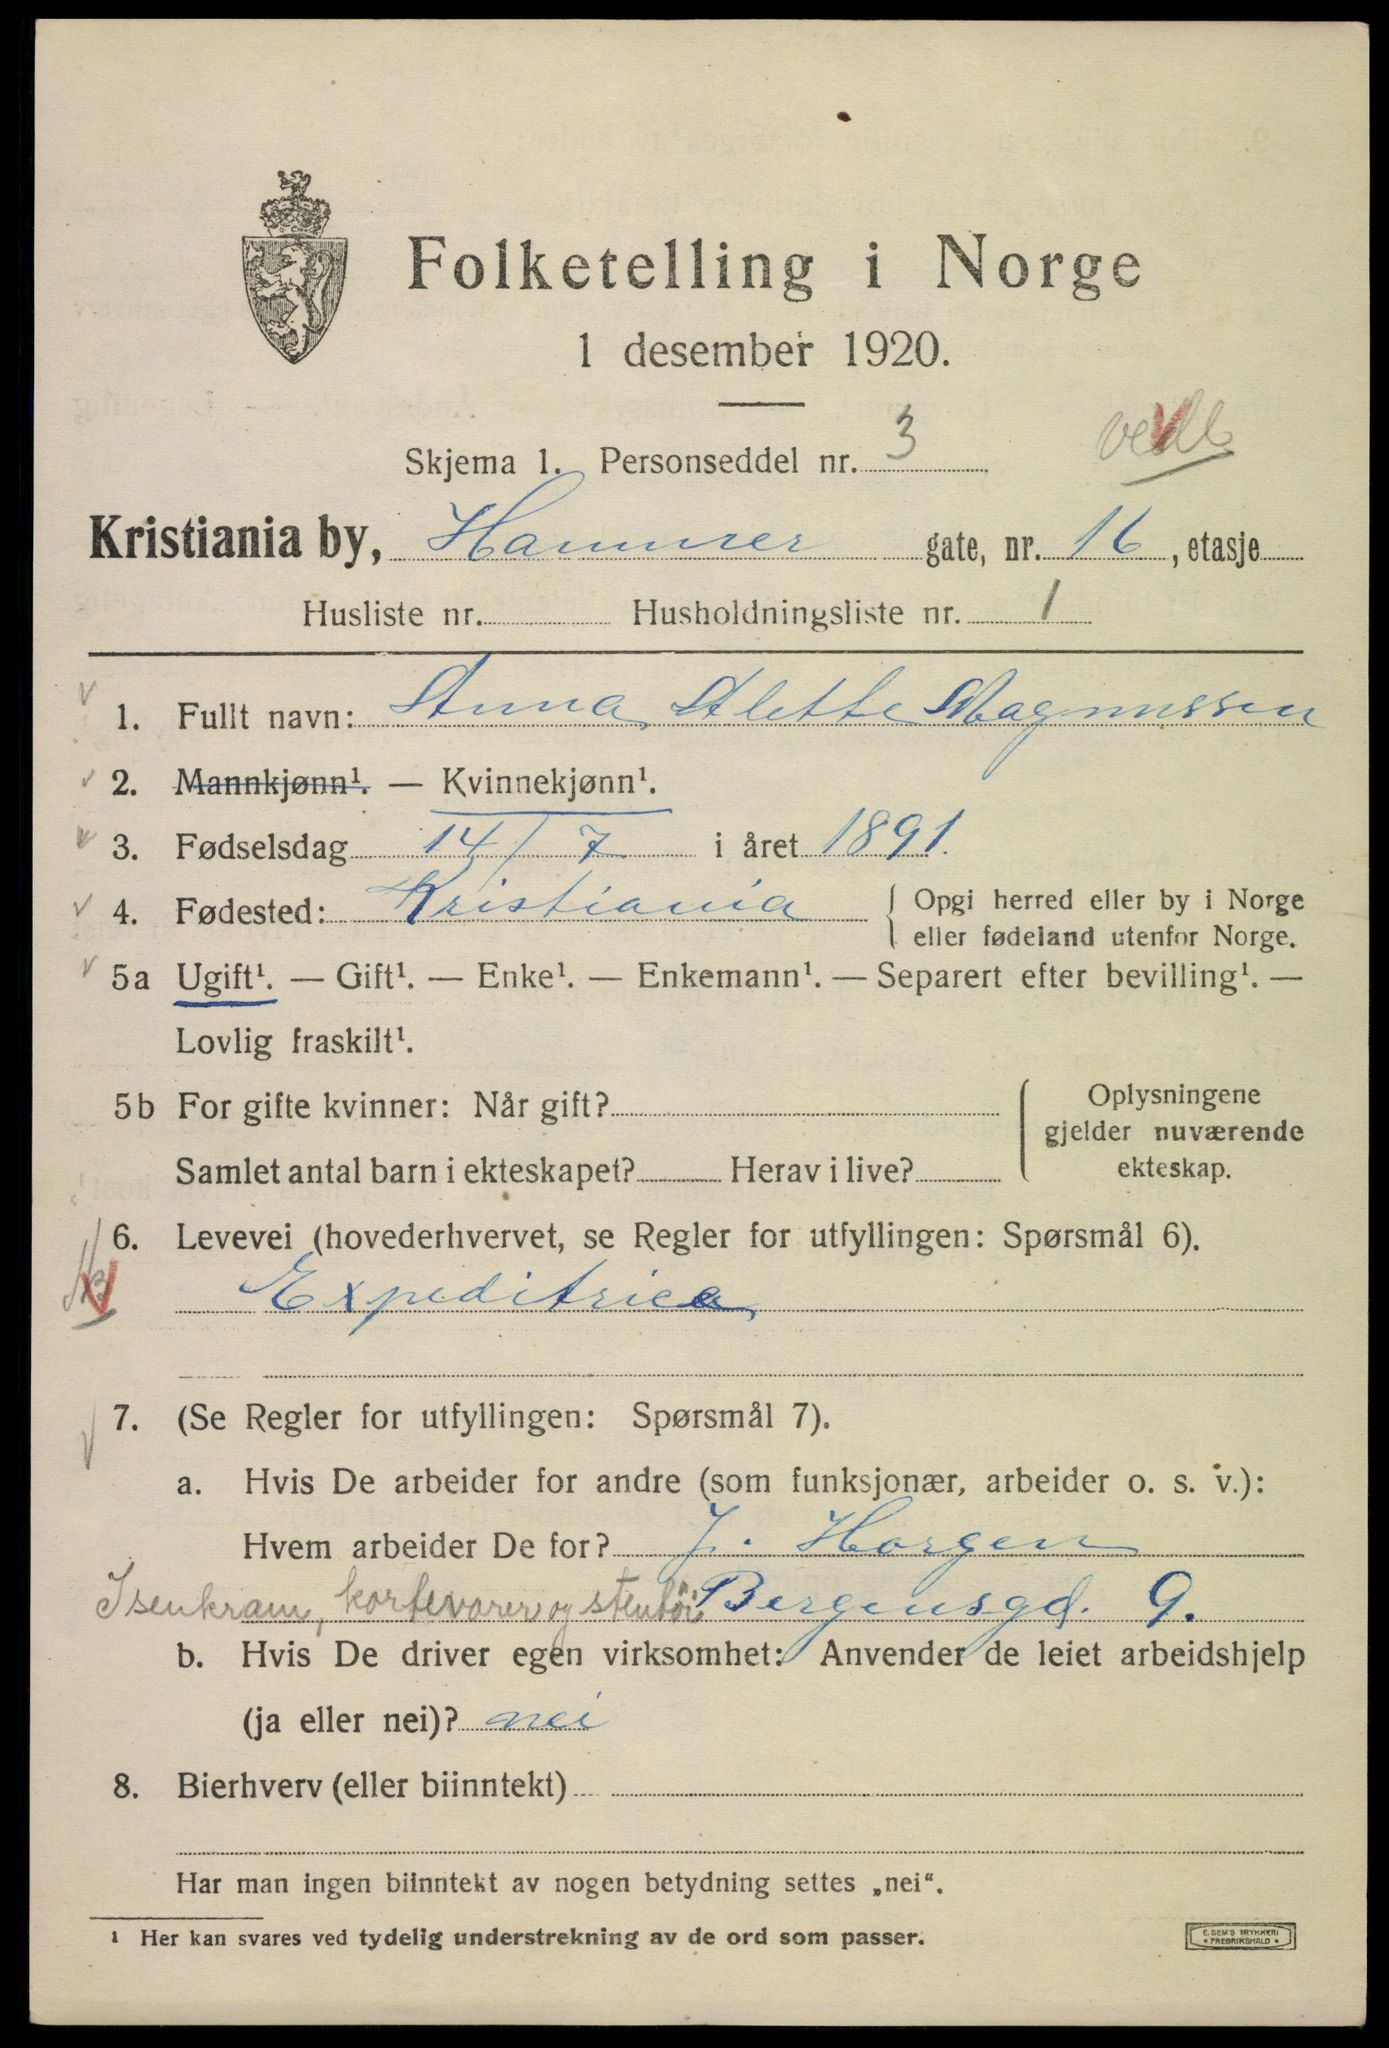 Folketelling i Norge
1 desember 1920.
Skjema 1. Personseddel nr. 3
Kristiania by, Hammer gate, nr. 16, etasje
Husliste nr. Husholdningsliste nr. 1
1. Fullt navn: Anna Alette Magnussen
2. Mannkjønn¹. — Kvinnekjønn¹.
3. Fødselsdag 14/7 i året 1891.
4. Fødested: Kristiania { Opgi herred eller by i Norge
eller fødeland utenfor Norge.
5a Ugift¹. — Gift¹. — Enke¹. — Enkemann¹. — Separert efter bevilling¹. —
Lovlig fraskilt¹.
5b For gifte kvinner: Når gift? { Oplysningene
gjelder nuværende
Samlet antal barn i ekteskapet? Herav i live? ekteskap.
6. Levevei (hovederhvervet, se Regler for utfyllingen: Spørsmål 6).
Expeditrice
7. (Se Regler for utfyllingen: Spørsmål 7).
a. Hvis De arbeider for andre (som funksjonær, arbeider o. s. v.):
Hvem arbeider De for? J. Horgen
Isenkram, kortevarer og stentöi Bergensgd. 9.
b. Hvis De driver egen virksomhet: Anvender de leiet arbeidshjelp
(ja eller nei)? nei
8. Bierhverv (eller biinntekt)
Har man ingen biinntekt av nogen betydning settes „nei“.
¹ Her kan svares ved tydelig understrekning av de ord som passer.
E. SEM'S TRYKKERI
FREDRIKSHALD